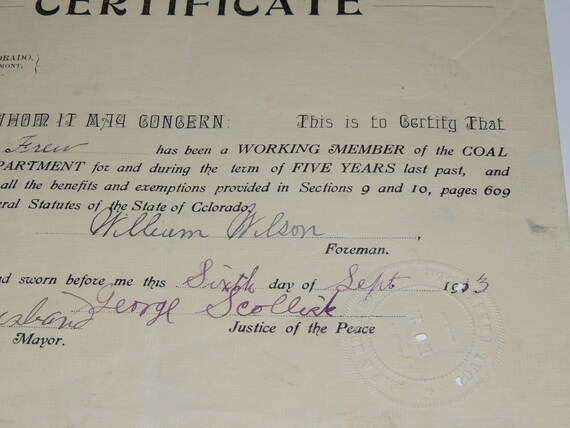 CERTIFICATE
ORADO,
MONT,
WHOM IT MAY CONCERN: This is to Certify That
Frew has been a WORKING MEMBER of the COAL
PARTMENT for and during the term of FIVE YEARS last past, and
all the benefits and exemptions provided in Sections 9 and 10, pages 609
eral Statutes of the State of Cclorado.
William Wilson
Foreman.
nd sworn before me this Sixth day of Sept 1903
George Scollick
usband Justice of the Peace
Mayor.